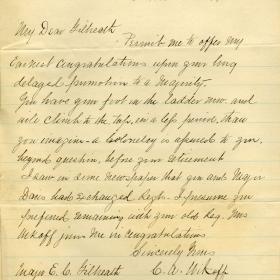 My Dear Gilbreath
Permit me to offer my
earnest congratulations upon your long
delayed promotion to a Majority.
You have your foot in the ladder now, and
will climb to the top, in a less period, than
you imagine - a Colonelcy is assured to you,
beyond question, before your retirement
I saw in some newspaper that you and Major
Daws had exchanged Regts. I presume you
preferred remaining with your old Reg. Mrs
Wikoff joins me in congratulations
Sincerely Yours
Major E. C. Gilbreath C. A. Wikoff